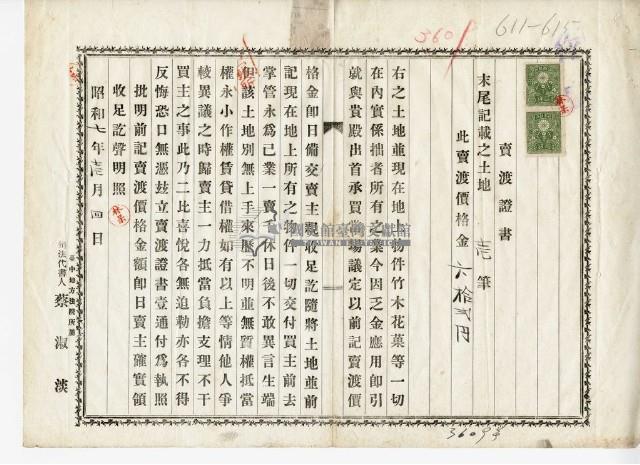 611-615
360
賣渡證書
末尾記載之土地 壱筆
此賣渡價格金 六拾弍円
右之土地並現在地上物件竹木花菓等一切
在內實係拙者所有之業今因乏金應用卽引
就與貴殿出首承買當場議定以前記賣渡價
格金卽日備交賣主親收足訖隨將土地並前
記現在地上所有之物件一切交付買主前去
掌管永為己業一賣千休日後不敢異言生端
但該土地別無上手來歷不明並無質權抵當
權永小作權賃貸借權如有以上等情他人爭
較異議之時歸賣主一力抵當負擔支理不干
買主之事此乃二比喜悅各無迫勒亦各不得
反悔恐口無憑玆立賣渡證書壹通付為執照
批明前記賣渡價格金額卽日賣主確實領
收足訖聲明照
昭和七年壱月四日
臺中地方法院所屬
司法代書人 蔡淑淡
國史館臺灣文獻館
TAIWAN HISTORICA